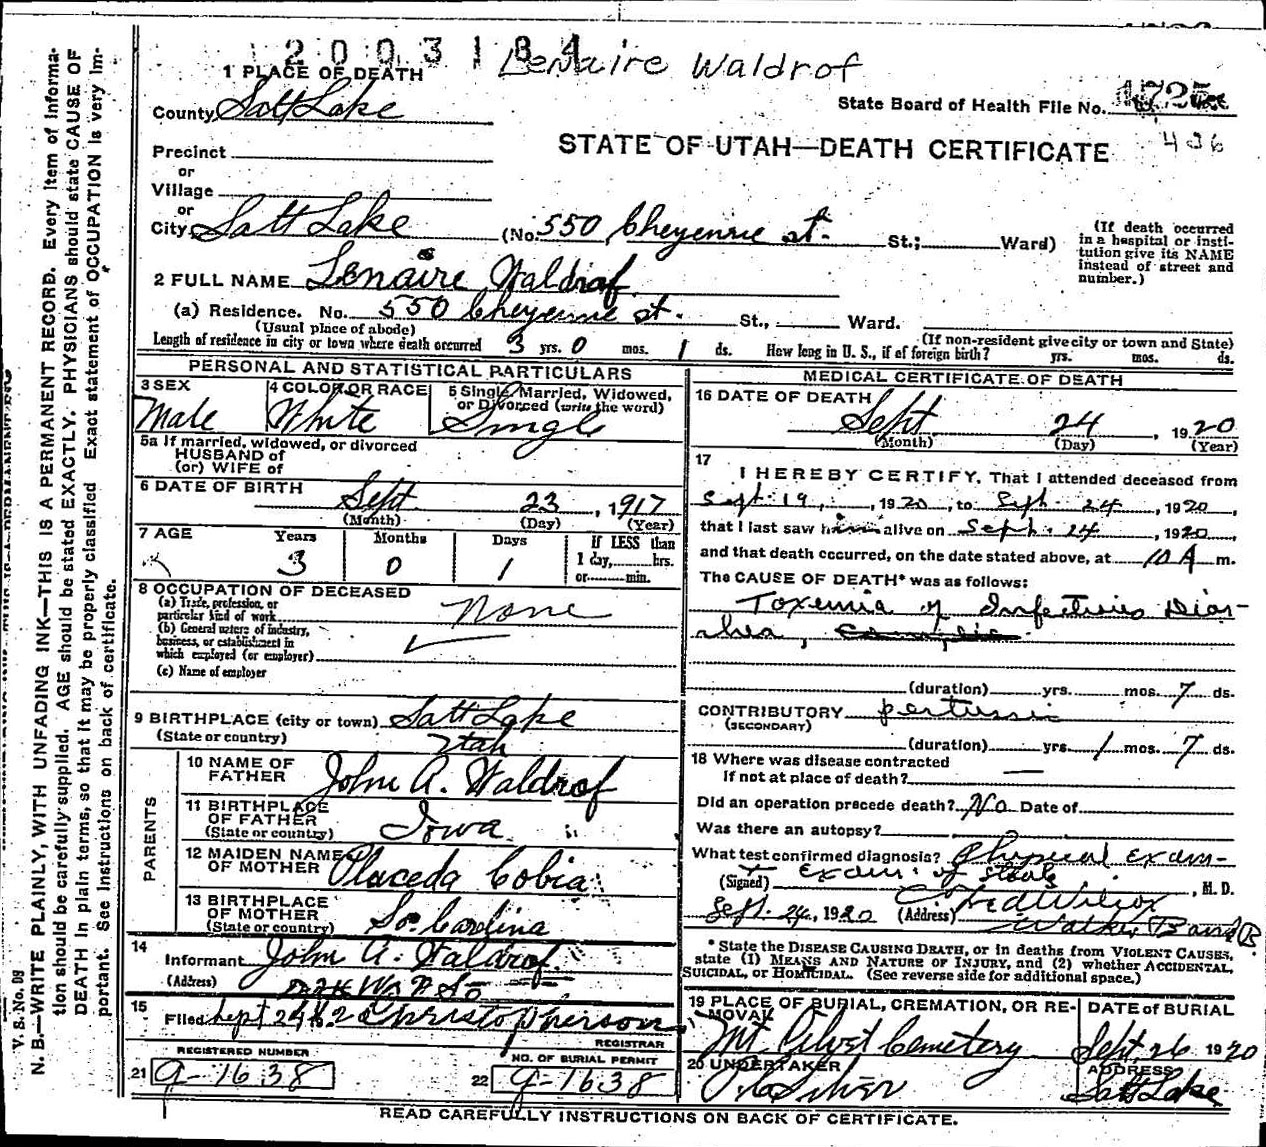 2003184 Lenaire Waldrof
1 PLACE OF DEATH
County Salt Lake
State Board of Health File No. 1725
436
STATE OF UTAH—DEATH CERTIFICATE
Precinct
or
Village
or
City Salt Lake (No. 550 Cheyenne st. St.; Ward)
(If death occurred in a hospital or insti-
tution give its NAME
instead of street and
number.)
2 FULL NAME Lenaire Waldrof
(a) Residence. No. 550 Cheyenne st. St., Ward.
(Usual place of abode) (If non-resident give city or town and State)
Length of residence in city or town where death occurred 3 yrs. 0 mos. 1 ds. How long in U. S., if of foreign birth? yrs. mos. ds.
PERSONAL AND STATISTICAL PARTICULARS
3 SEX Male
4 COLOR OR RACE White
5 Single, Married, Widowed,
or Divorced (write the word)
Single
5a If married, widowed, or divorced
HUSBAND of
(or) WIFE of
6 DATE OF BIRTH Sept 23, 1917
(Month) (Day) (Year)
7 AGE Years Months Days If LESS than
3 0 1 1 day, hrs.
or min.
8 OCCUPATION OF DECEASED
(a) Trade, profession, or
particular kind of work None
(b) General nature of industry,
business, or establishment in
which employed (or employer)
(c) Name of employer
9 BIRTHPLACE (city or town) Salt Lake
(State or country) Utah
PARENTS
10 NAME OF
FATHER John A. Waldrof
11 BIRTHPLACE
OF FATHER
(State or country) Iowa
12 MAIDEN NAME
OF MOTHER Placeda Cobia
13 BIRTHPLACE
OF MOTHER
(State or country) So. Carolina
14
Informant John A. Waldrof
(Address)
15 Filed Sept Christopherson
REGISTRAR
REGISTERED NUMBER
21 9-1638
NO. OF BURIAL PERMIT
22 9-1638
MEDICAL CERTIFICATE OF DEATH
16 DATE OF DEATH
Sept 24, 1920
(Month) (Day) (Year)
17
I HEREBY CERTIFY, That I attended deceased from
Sept. 19, 1920, to Sept. 24, 1920,
that I last saw him alive on Sept. 24, 1920,
and that death occurred, on the date stated above, at 10 A m.
The CAUSE OF DEATH* was as follows:
Toxemia of Infectious Diar-
rhea,
(duration) yrs. mos. 7 ds.
CONTRIBUTORY pertussis
(SECONDARY)
(duration) yrs. 1 mos. 7 ds.
18 Where was disease contracted
if not at place of death? —
Did an operation precede death? No Date of
Was there an autopsy?
What test confirmed diagnosis? Physical Exam-
Exam. of stools
(Signed) Wilcox, M. D.
Sept. 24, 1920 (Address) Walker Bank B
* State the DISEASE CAUSING DEATH, or in deaths from VIOLENT CAUSES,
state (1) MEANS AND NATURE OF INJURY, and (2) whether ACCIDENTAL,
SUICIDAL, or HOMICIDAL. (See reverse side for additional space.)
19 PLACE OF BURIAL, CREMATION, OR RE-
MOVAL
Mt Olivet Cemetery
DATE of BURIAL
Sept. 26 1920
20 UNDERTAKER
ADDRESS
Salt Lake
READ CAREFULLY INSTRUCTIONS ON BACK OF CERTIFICATE.
V. S. No. 98
N. B.—WRITE PLAINLY, WITH UNFADING INK—THIS IS A PERMANENT RECORD. Every item of informa-
tion should be carefully supplied. AGE should be stated EXACTLY. PHYSICIANS should state CAUSE OF
DEATH in plain terms, so that it may be properly classified. Exact statement of OCCUPATION is very im-
portant. See instructions on back of certificate.